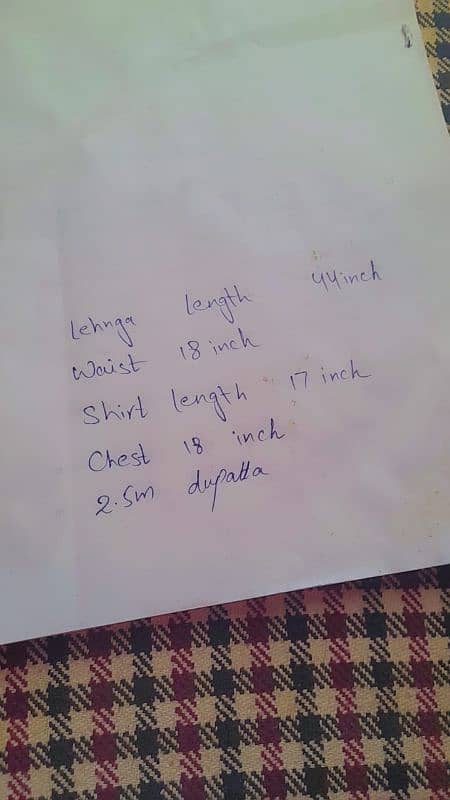 Lehnga length 44inch
Waist 18 inch
Shirt length 17 inch
Chest 18 inch
2.5m dupatta